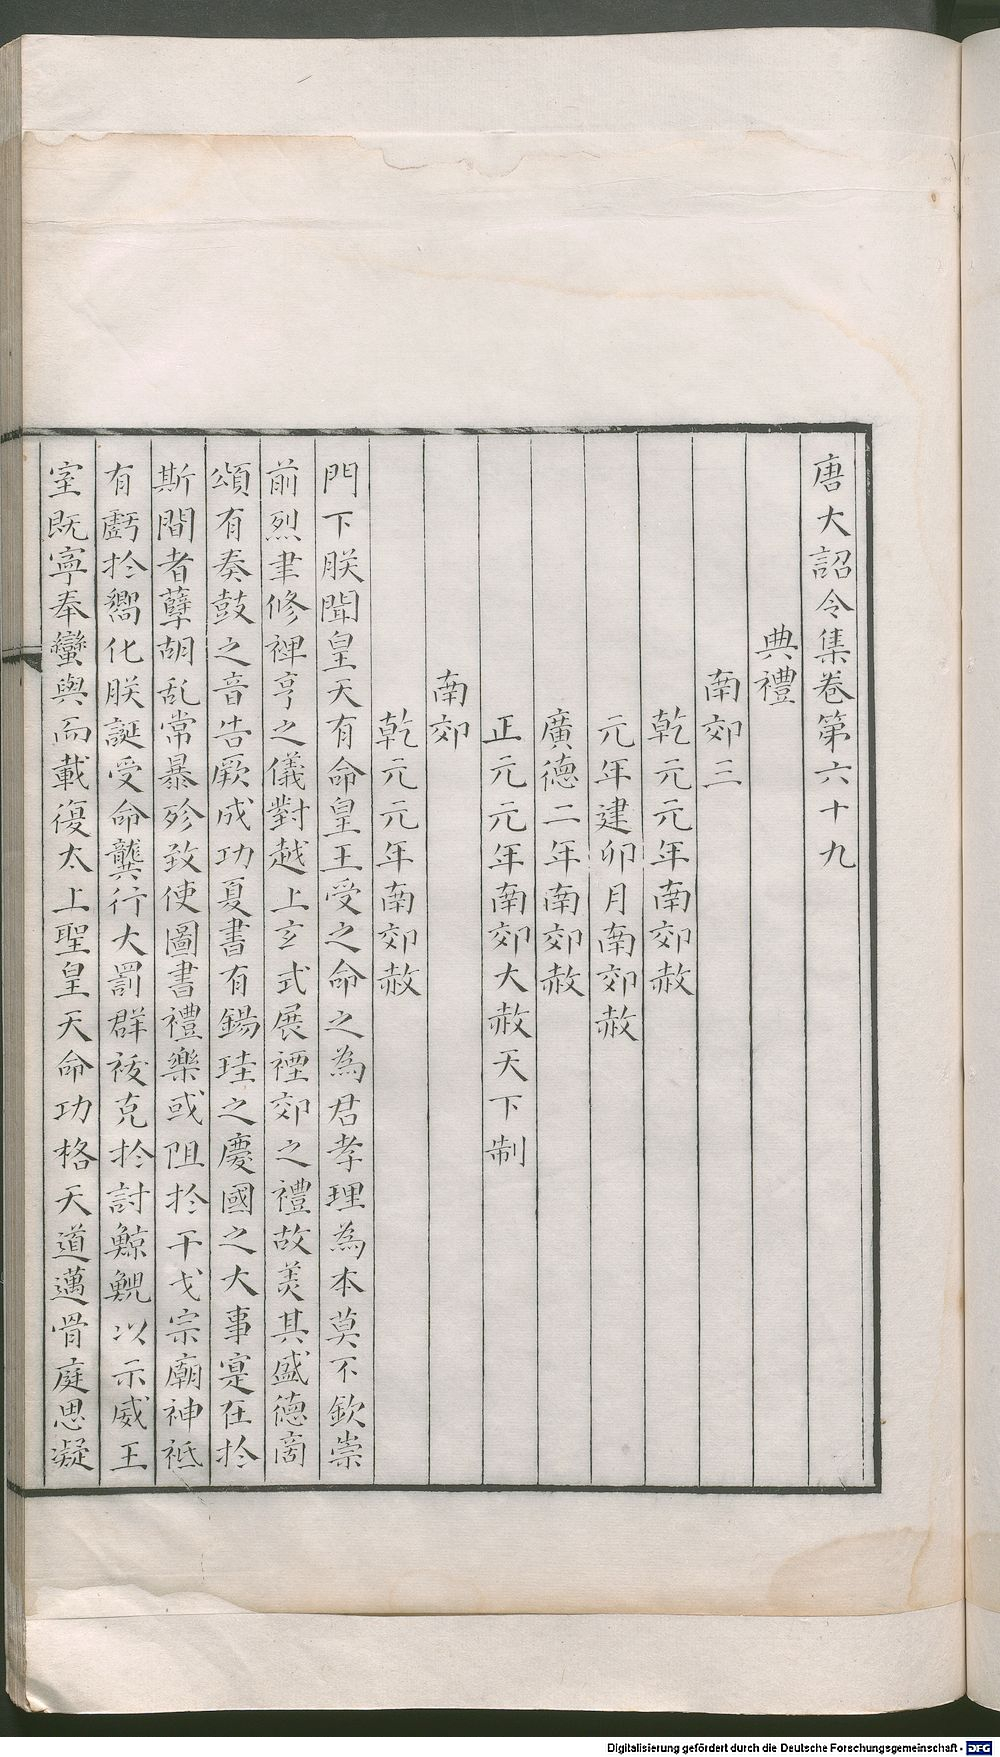 唐大詔令集卷第六十九
典禮
南郊三
乾元元年南郊赦
元年建卯月南郊赦
廣德二年南郊赦
正元元年南郊大赦天下制
南郊
乾元元年南郊赦
門下朕聞皇天有命皇王受之命之為君孝理為本莫不欽崇
前烈聿修禋享之儀對越上玄式展禋郊之禮故美其盛德啇
頌有奏鼓之音告厥成功夏書有錫珪之慶國之大事寔在扵
斯間者孽胡乱常暴殄致使圖書禮樂或阻扵干戈宗廟神祗
有虧扵嚮化朕誕受命龔行大罰群祲克扵討鯨鯢以示威王
室既寧奉蠻輿而載復太上聖皇天命功格天道邁胥庭思凝
Digitalisierung gefördert durch die Deutsche Forschungsgemeinschaft - DFG